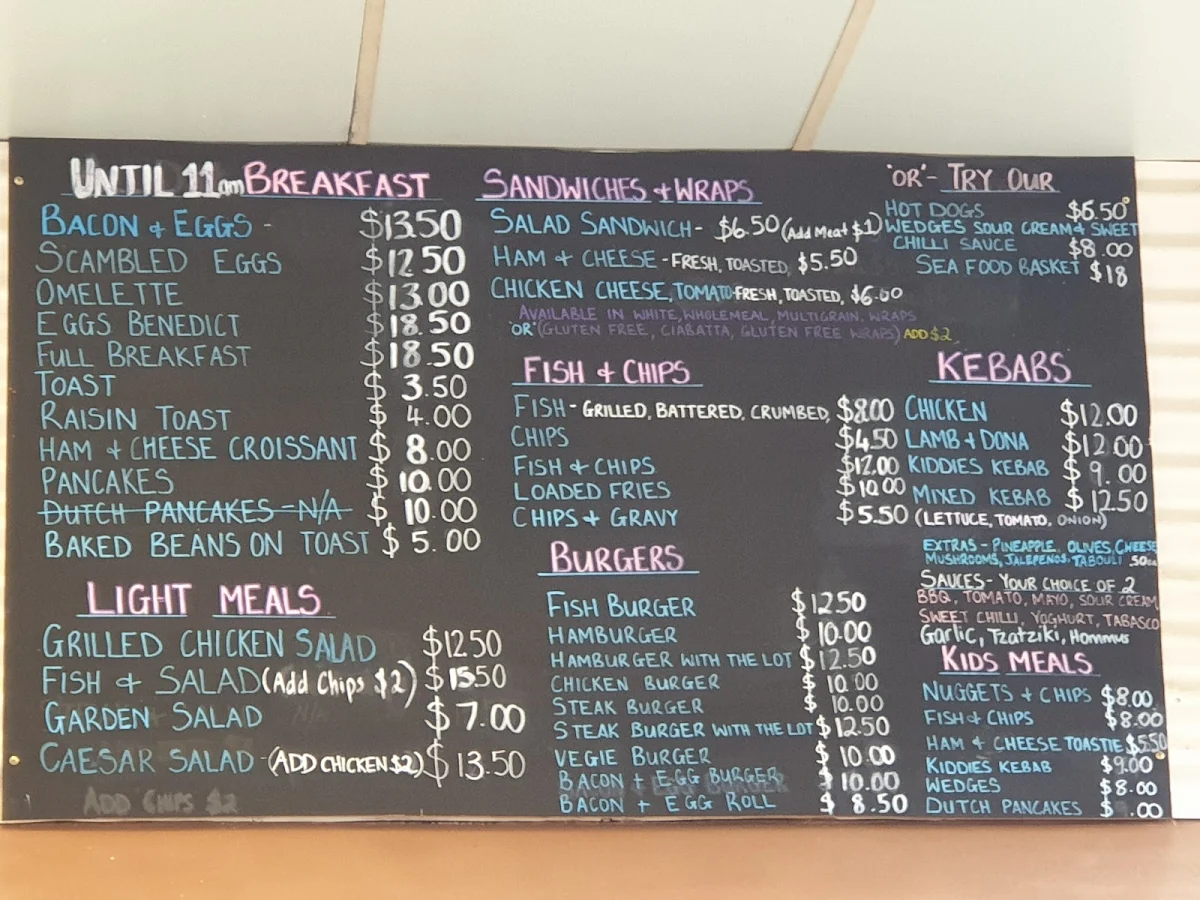 UNTIL 11am BREAKFAST
BACON + EGGS - $13.50
SCAMBLED EGGS $12.50
OMELETTE $13.00
EGGS BENEDICT $18.50
FULL BREAKFAST $18.50
TOAST $3.50
RAISIN TOAST $4.00
HAM + CHEESE CROISSANT $8.00
PANCAKES $10.00
DUTCH PANCAKES - N/A $10.00
BAKED BEANS ON TOAST $5.00
LIGHT MEALS
GRILLED CHICKEN SALAD $12.50
FISH + SALAD (Add Chips $2) $15.50
GARDEN SALAD $7.00
CAESAR SALAD - (ADD CHICKEN $2) $13.50
ADD CHIPS $2
SANDWICHES + WRAPS
SALAD SANDWICH - $6.50 (Add Meat $1)
HAM + CHEESE - FRESH, TOASTED, $5.50
CHICKEN CHEESE, TOMATO-FRESH, TOASTED, $6.00
AVAILABLE IN WHITE, WHOLEMEAL, MULTIGRAIN, WRAPS
"OR" (GLUTEN FREE, CIABATTA, GLUTEN FREE WRAPS) ADD $2
FISH + CHIPS
FISH - GRILLED, BATTERED, CRUMBED, $8.00
CHIPS $4.50
FISH + CHIPS $12.00
LOADED FRIES $10.00
CHIPS + GRAVY $5.50
BURGERS
FISH BURGER $12.50
HAMBURGER $10.00
HAMBURGER WITH THE LOT $12.50
CHICKEN BURGER $10.00
STEAK BURGER $10.00
STEAK BURGER WITH THE LOT $12.50
VEGIE BURGER $10.00
BACON + EGG BURGER $10.00
BACON + EGG ROLL $8.50
"OR" - TRY OUR
HOT DOGS $6.50
WEDGES SOUR CREAM & SWEET
CHILLI SAUCE $8.00
SEA FOOD BASKET $18
KEBABS
CHICKEN $12.00
LAMB + DONA $12.00
KIDDIES KEBAB $9.00
MIXED KEBAB $12.50
(LETTUCE, TOMATO, ONION)
EXTRAS - PINEAPPLE, OLIVES, CHEESE
MUSHROOMS, JALEPENOS, TABOULI .50
SAUCES - YOUR CHOICE OF 2
BBQ, TOMATO, MAYO, SOUR CREAM
SWEET CHILLI, YOGHURT, TABASCO
Garlic, Tzatziki, Hommus
KIDS MEALS
NUGGETS + CHIPS $8.00
FISH + CHIPS $8.00
HAM + CHEESE TOASTIE $5.50
KIDDIES KEBAB $9.00
WEDGES $8.00
DUTCH PANCAKES $ .00